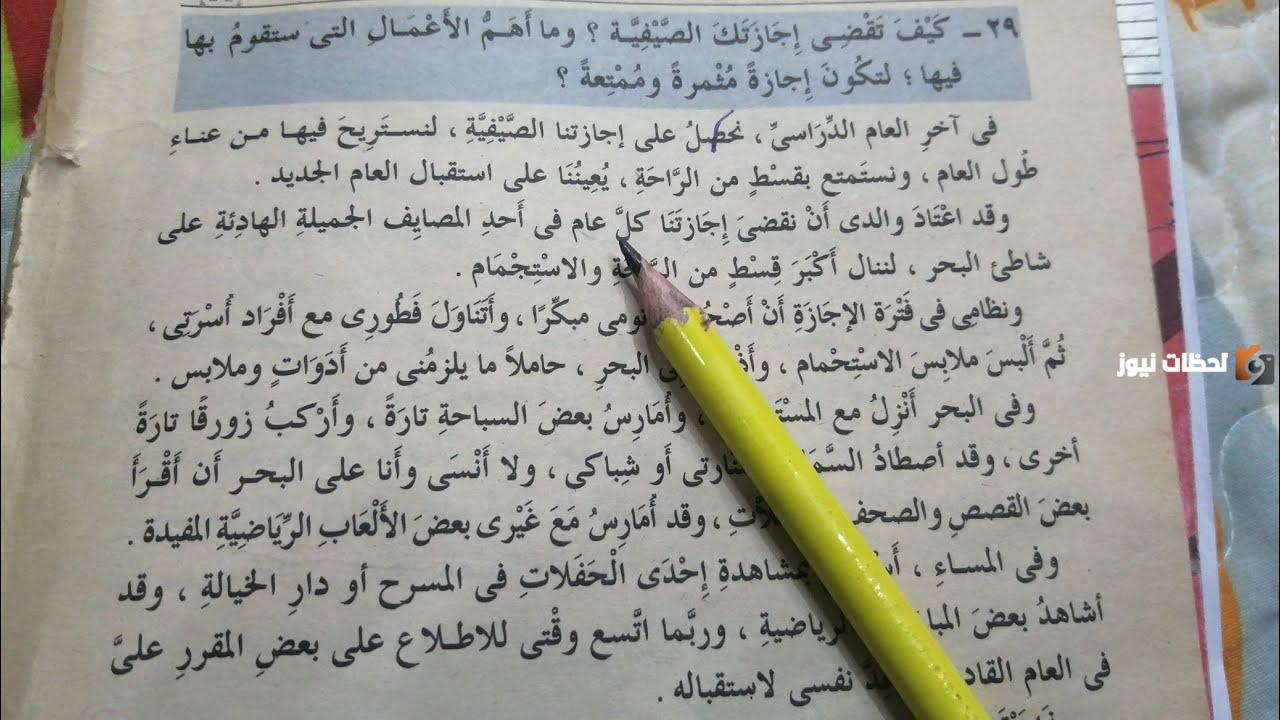 ٢٩ - كَيْفَ تَقْضِى إِجَازَتَكَ الصَّيْفِيَّة ؟ وما أَهَمُّ الأَعْمَالِ التى ستقومُ بها
فيها ؛ لتكُونَ إِجازةً مُثْمرةً ومُمْتِعةً ؟
فى آخرِ العام الدِّرَاسىِّ ، نحصلُ على إجازتنا الصَّيْفِيَّةِ ، لنستَرِيحَ فيها من عناءِ
طُول العام ، ونستَمتع بقسْطٍ من الرَّاحَةِ ، يُعِينُنَا على استقبال العام الجديد .
وقد اعْتَادَ والدى أَنْ نقضىَ إِجَازتَنَا كلَّ عام فى أَحدِ المصايِف الجميلةِ الهادِئةِ على
شاطئ البحر ، لننال أَكْبَرَ قِسْطٍ من والاسْتِجْمَام .
ونظامِى فى فَتْرَة الإجَازَةِ أَنْ نومى مبكِّرًا ، وأَتَنَاوَلَ فَطُورِى مع أَفْرَاد أُسْرَتِى ،
ثُمَّ أَلْبسَ ملابِسَ الاسْتِحْمام ، البحرِ ، حاملاً ما يلزمُنى من أَدَوَاتٍ وملابس .
وفى البحر أَنْزِلُ مع ، وأُمَارِسُ بعضَ السباحةِ تارَةً ، وأَرْكبُ زورقًا تارَةً
أخرى ، وقد أصطادُ أَو شِباكى ، ولا أَنْسَى وأَنا على البحر أَن أَقْرَأَ
بعضَ القصصِ والصحف ، وقد أُمَارِسُ مَعَ غَيْرى بعضَ الأَلْعَابِ الرِّيَاضِيَّةِ المفيدة .
وفى المساءِ ، بمشاهدةِ إِحْدَى الْحَفَلاتِ فى المسرح أو دارِ الخيالةِ ، وقد
أشاهدُ بعضَ الرياضيةِ ، وربَّما اتَّسع وقْتى للاطلاع على بعضِ المقررِ علىَّ
فى العام نفسى لاستقباله .
لحظات نيوز